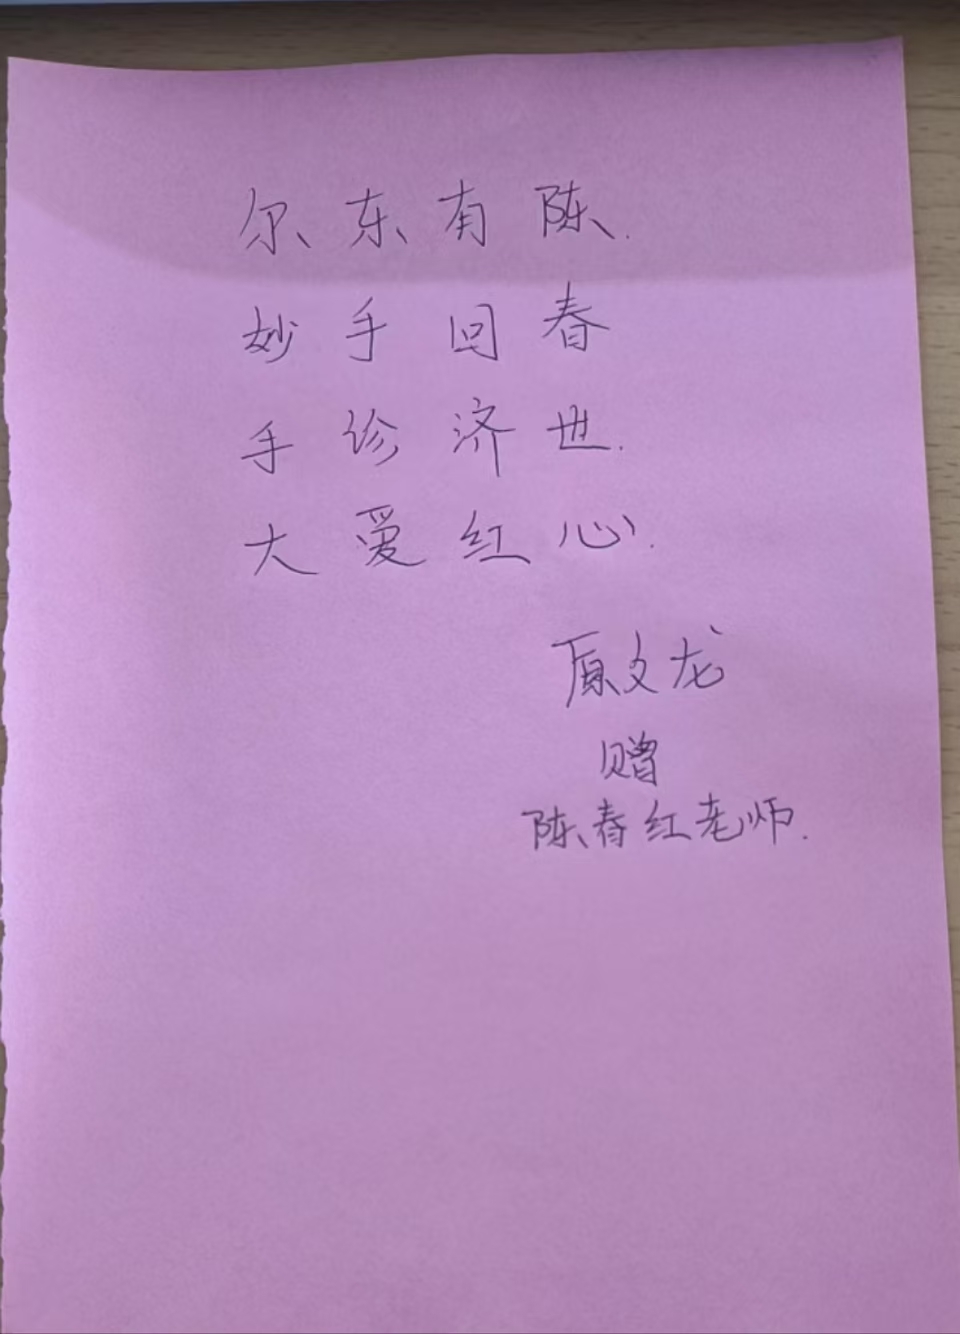 尔东有陈.
妙手回春
手诊济世.
大爱红心.
原文龙
赠
陈春红老师.